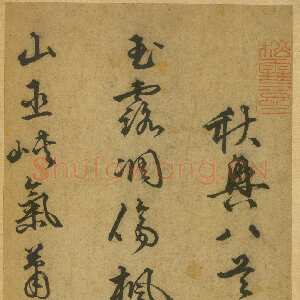 秋興八首
玉露凋傷楓
山巫峽氣蕭